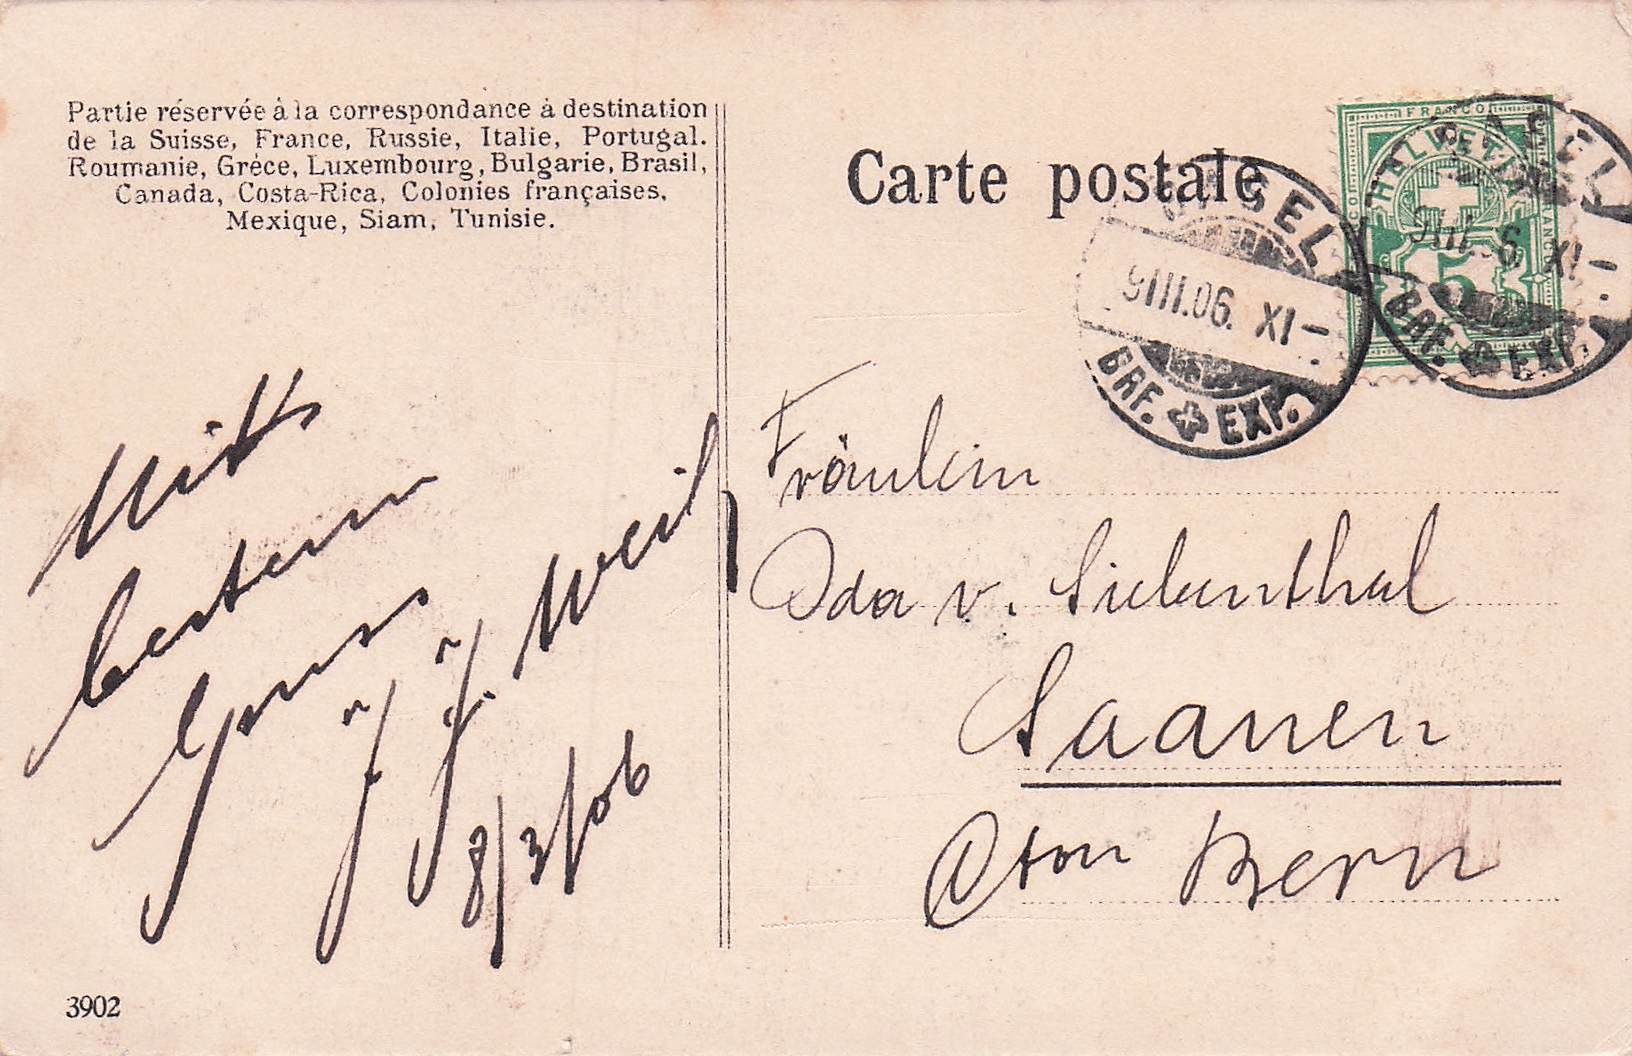 Partie réservée à la correspondance à destination
de la Suisse, France, Russie, Italie, Portugal.
Roumanie, Gréce, Luxembourg, Bulgarie, Brasil,
Canada, Costa-Rica, Colonies françaises.
Mexique, Siam, Tunisie.
Carte postale
FRANCO
HELVETIA
FRANCO
5
BASEL
9 III. 06. XI –
BRF. EXP.
BASEL
9 III 6 XI –
BRF. EXP.
bestem
Gruss
J. Weil
8/3/06
Fräulein
Ida v. Siebenthal
Saanen
Cton Bern
3902